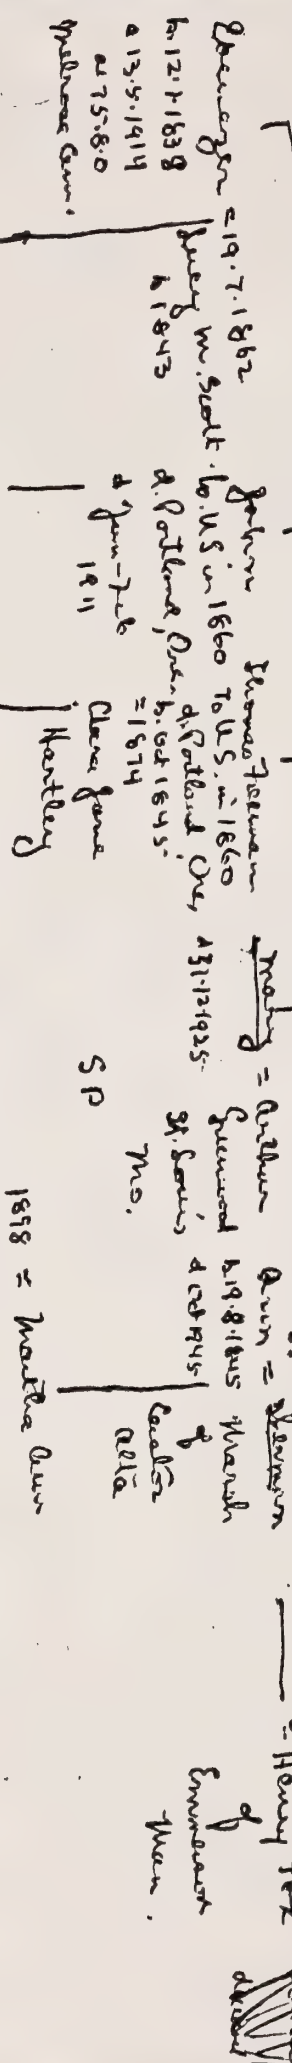 Ebenezer = 19.7.1862
b. 12.1.1838 Lucy M. Scott.
d 13.5.1914 b 1843
ae 75.8.0
Melrose Cem.
John
to U.S in 1860
d. Portland, Ore.
d Jan-Feb
1911
Thomas Freeman
To U.S. in 1860
d. Portland Ore,
b. Oct 1845
= 1874
Clara Jane
Hartley
Mary = Arthur
d 31.12.1925. Greenwood
St. Louis
Mo.
S P
Ann = Sherman
b 19.8.1845 Marsh
d Oct 1945 of
Alta
1898 = Martha Ann
= Henry
of
Emerson
Man.